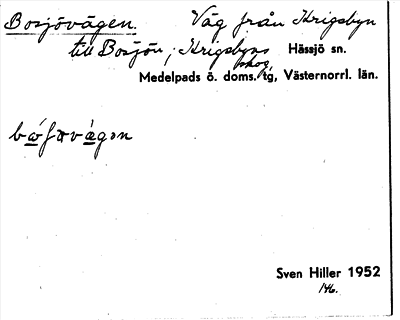 Bosjövägen. Väg från Krigsbyn
till Bosjön, Krigsbyns skog, Hässjö sn.
Medelpads ö. doms.tg, Västernorrl. län.
Sven Hiller 1952
146.